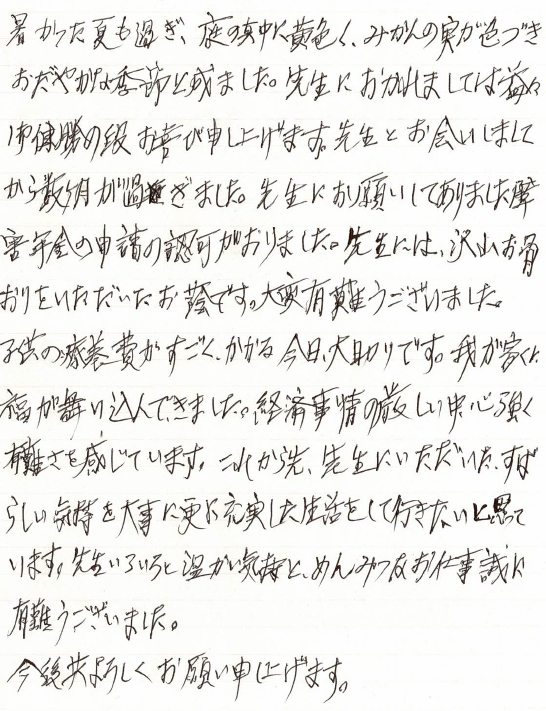 暑かった夏も過ぎ、庭の真中に黄色く、みかんの実が色づき
おだやかな季節と成ました。先生におかれましては益々
御健勝の段お喜び申し上げます。先生とお会いしまして
から数ケ月が過ぎました。先生にお願いしてありました障
害年金の申請の認可がおりました。先生には、沢山お骨
おりをいただいたお蔭です。大変有難うございました。
子供の療養費がすごく、かかる今日、大助りです。我が家に
福が舞い込んできました。経済事情の厳しい中、心強く
有難さを感じています。これから先、先生にいただいた、すば
らしい気持を大事に更に充実した生活をして行きたいと思って
います。先生いろいろと温かい気持と、めんみつなお仕事誠に
有難うございました。
今後共よろしくお願い申し上げます。